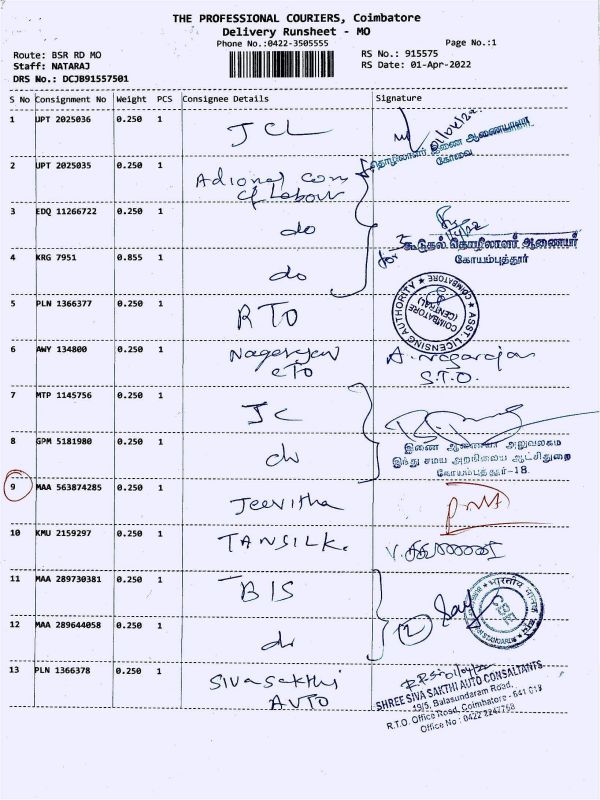 THE PROFESSIONAL COURIERS, Coimbatore
Delivery Runsheet - MO
Phone No.:0422-3505555
Page No.:1
Route: BSR RD MO
RS No.: 915575
Staff: NATARAJ
RS Date: 01-Apr-2022
DRS No.: DCJB91557501
S No Consignment No Weight PCS Consignee Details Signature
1 UPT 2025036 0.250 1 JCL
தொழிலாளர் இணை ஆணையாளர்
கோவை
2 UPT 2025035 0.250 1 Adional Com
of Labour
3 EDQ 11266722 0.250 1 do
கூடுதல் தொழிலாளர் ஆணையர்
கோயம்புத்தூர்
for
4 KRG 7951 0.855 1 do
ASST. LICENSING AUTHORITY
COIMBATORE
COIMBATORE
(CENTRAL)
5 PLN 1366377 0.250 1 RTO
6 AWY 134800 0.250 1 Nagarajan
CTO
A. Nagarajan
S.T.O.
7 MTP 1145756 0.250 1 JC
8 GPM 5181980 0.250 1 do
இணை ஆணையர் அலுவலகம்
இந்து சமய அறநிலைய ஆட்சிதுறை
கோயம்புத்தூர்-18.
9 MAA 563874285 0.250 1 Jeevitha
10 KMU 2159297 0.250 1 TANSILK.
11 MAA 289730381 0.250 1 BIS
12 MAA 289644058 0.250 1 do
2
भारतीय मानक ब्यूरो
13 PLN 1366378 0.250 1 Sivasakthi
AUTO
SHREE SIVA SAKTHI AUTO CONSALTANTS
19/5, Balasundaram Road,
R.T.O. Office Road, Coimbatore - 641 018
Office No : 0422 2247758